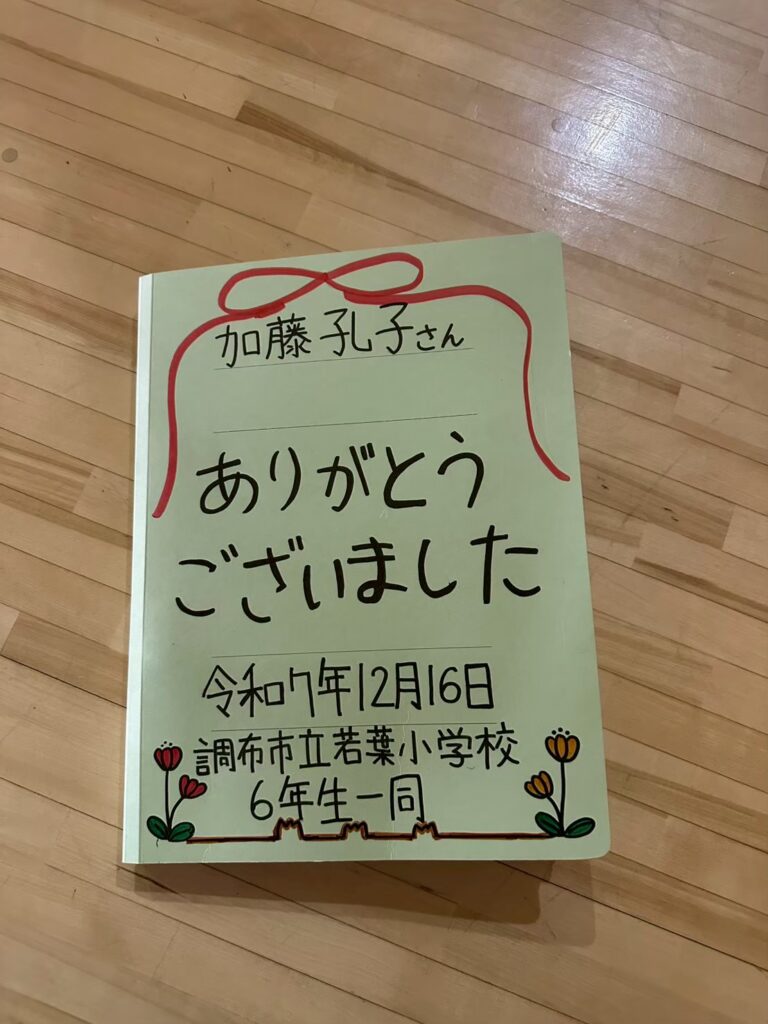 加藤孔子さん
ありがとう
ございました
令和7年12月16日
調布市立若葉小学校
6年生一同